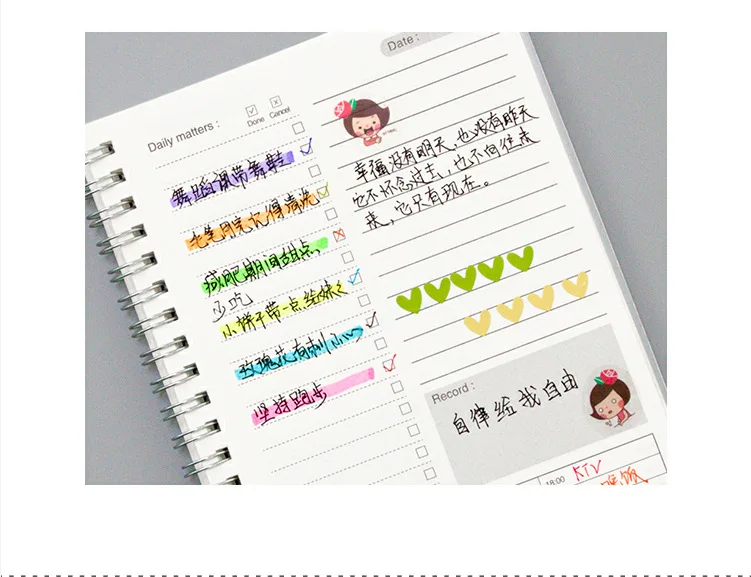 Date :
Done Cancel
Daily matters :
舞蹈课带舞鞋
毛笔用完记得清洗
减肥期间甜点,
少吃
小饼干带一点给妹妹
玫瑰花有刺小心
坚持跑步
幸福没有明天,也没有昨天
它不怀念过去,也不向往未
来,它只有现在。
Record :
自律给我自由
18:00 KTV